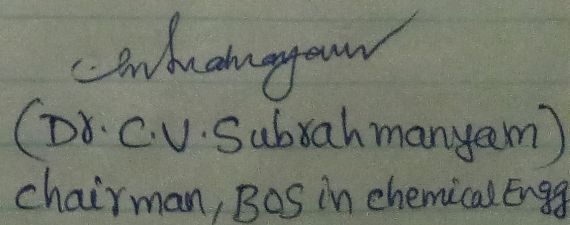 (Dr. C.V. Subrahmanyam)
Chairman, BOS in chemical Engg